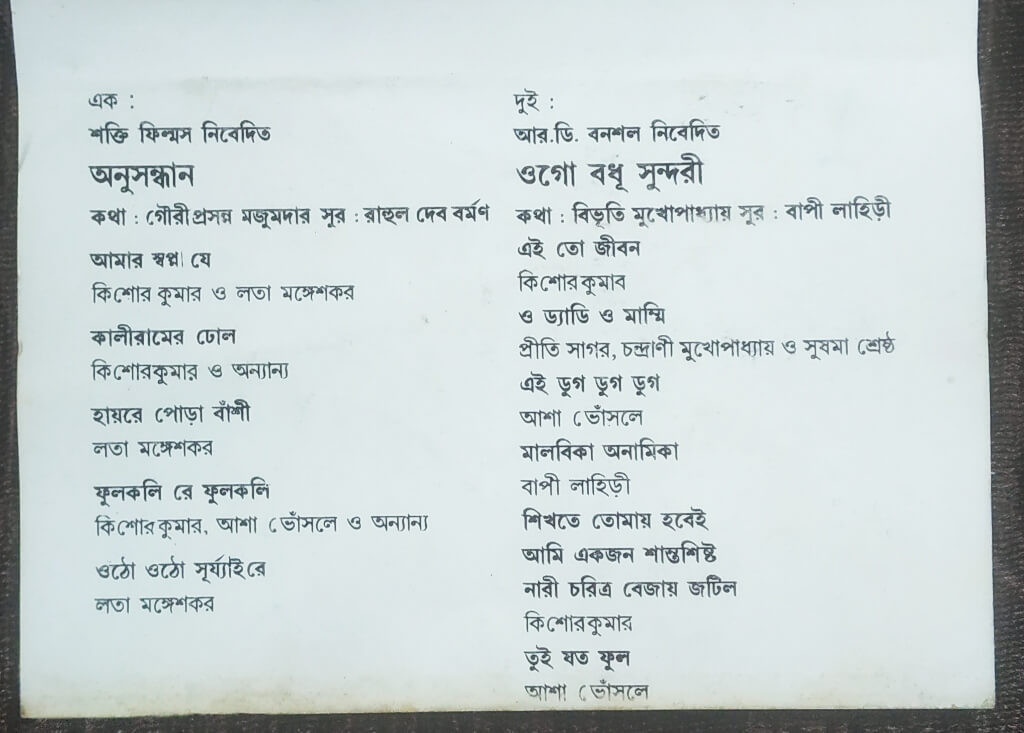 এক :
শক্তি ফিল্মস নিবেদিত
অনুসন্ধান
কথা : গৌরীপ্রসন্ন মজুমদার সুর : রাহুল দেব বর্মণ
আমার স্বপ্ন যে
কিশোর কুমার ও লতা মঙ্গেশকর
কালীরামের ঢোল
কিশোরকুমার ও অন্যান্য
হায়রে পোড়া বাঁশী
লতা মঙ্গেশকর
ফুলকলি রে ফুলকলি
কিশোরকুমার, আশা ভোঁসলে ও অন্যান্য
ওঠো ওঠো সূর্য্যাইরে
লতা মঙ্গেশকর
দুই :
আর.ডি. বনশল নিবেদিত
ওগো বধূ সুন্দরী
কথা : বিভূতি মুখোপাধ্যায় সুর : বাপী লাহিড়ী
এই তো জীবন
কিশোরকুমার
ও ড্যাডি ও মাম্মি
প্রীতি সাগর, চন্দ্রাণী মুখোপাধ্যায় ও সুষমা শ্রেষ্ঠ
এই ডুগ ডুগ ডুগ
আশা ভোঁসলে
মালবিকা অনামিকা
বাপী লাহিড়ী
শিখতে তোমায় হবেই
আমি একজন শান্তশিষ্ট
নারী চরিত্র বেজায় জটিল
কিশোরকুমার
তুই যত ফুল
আশা ভোঁসলে